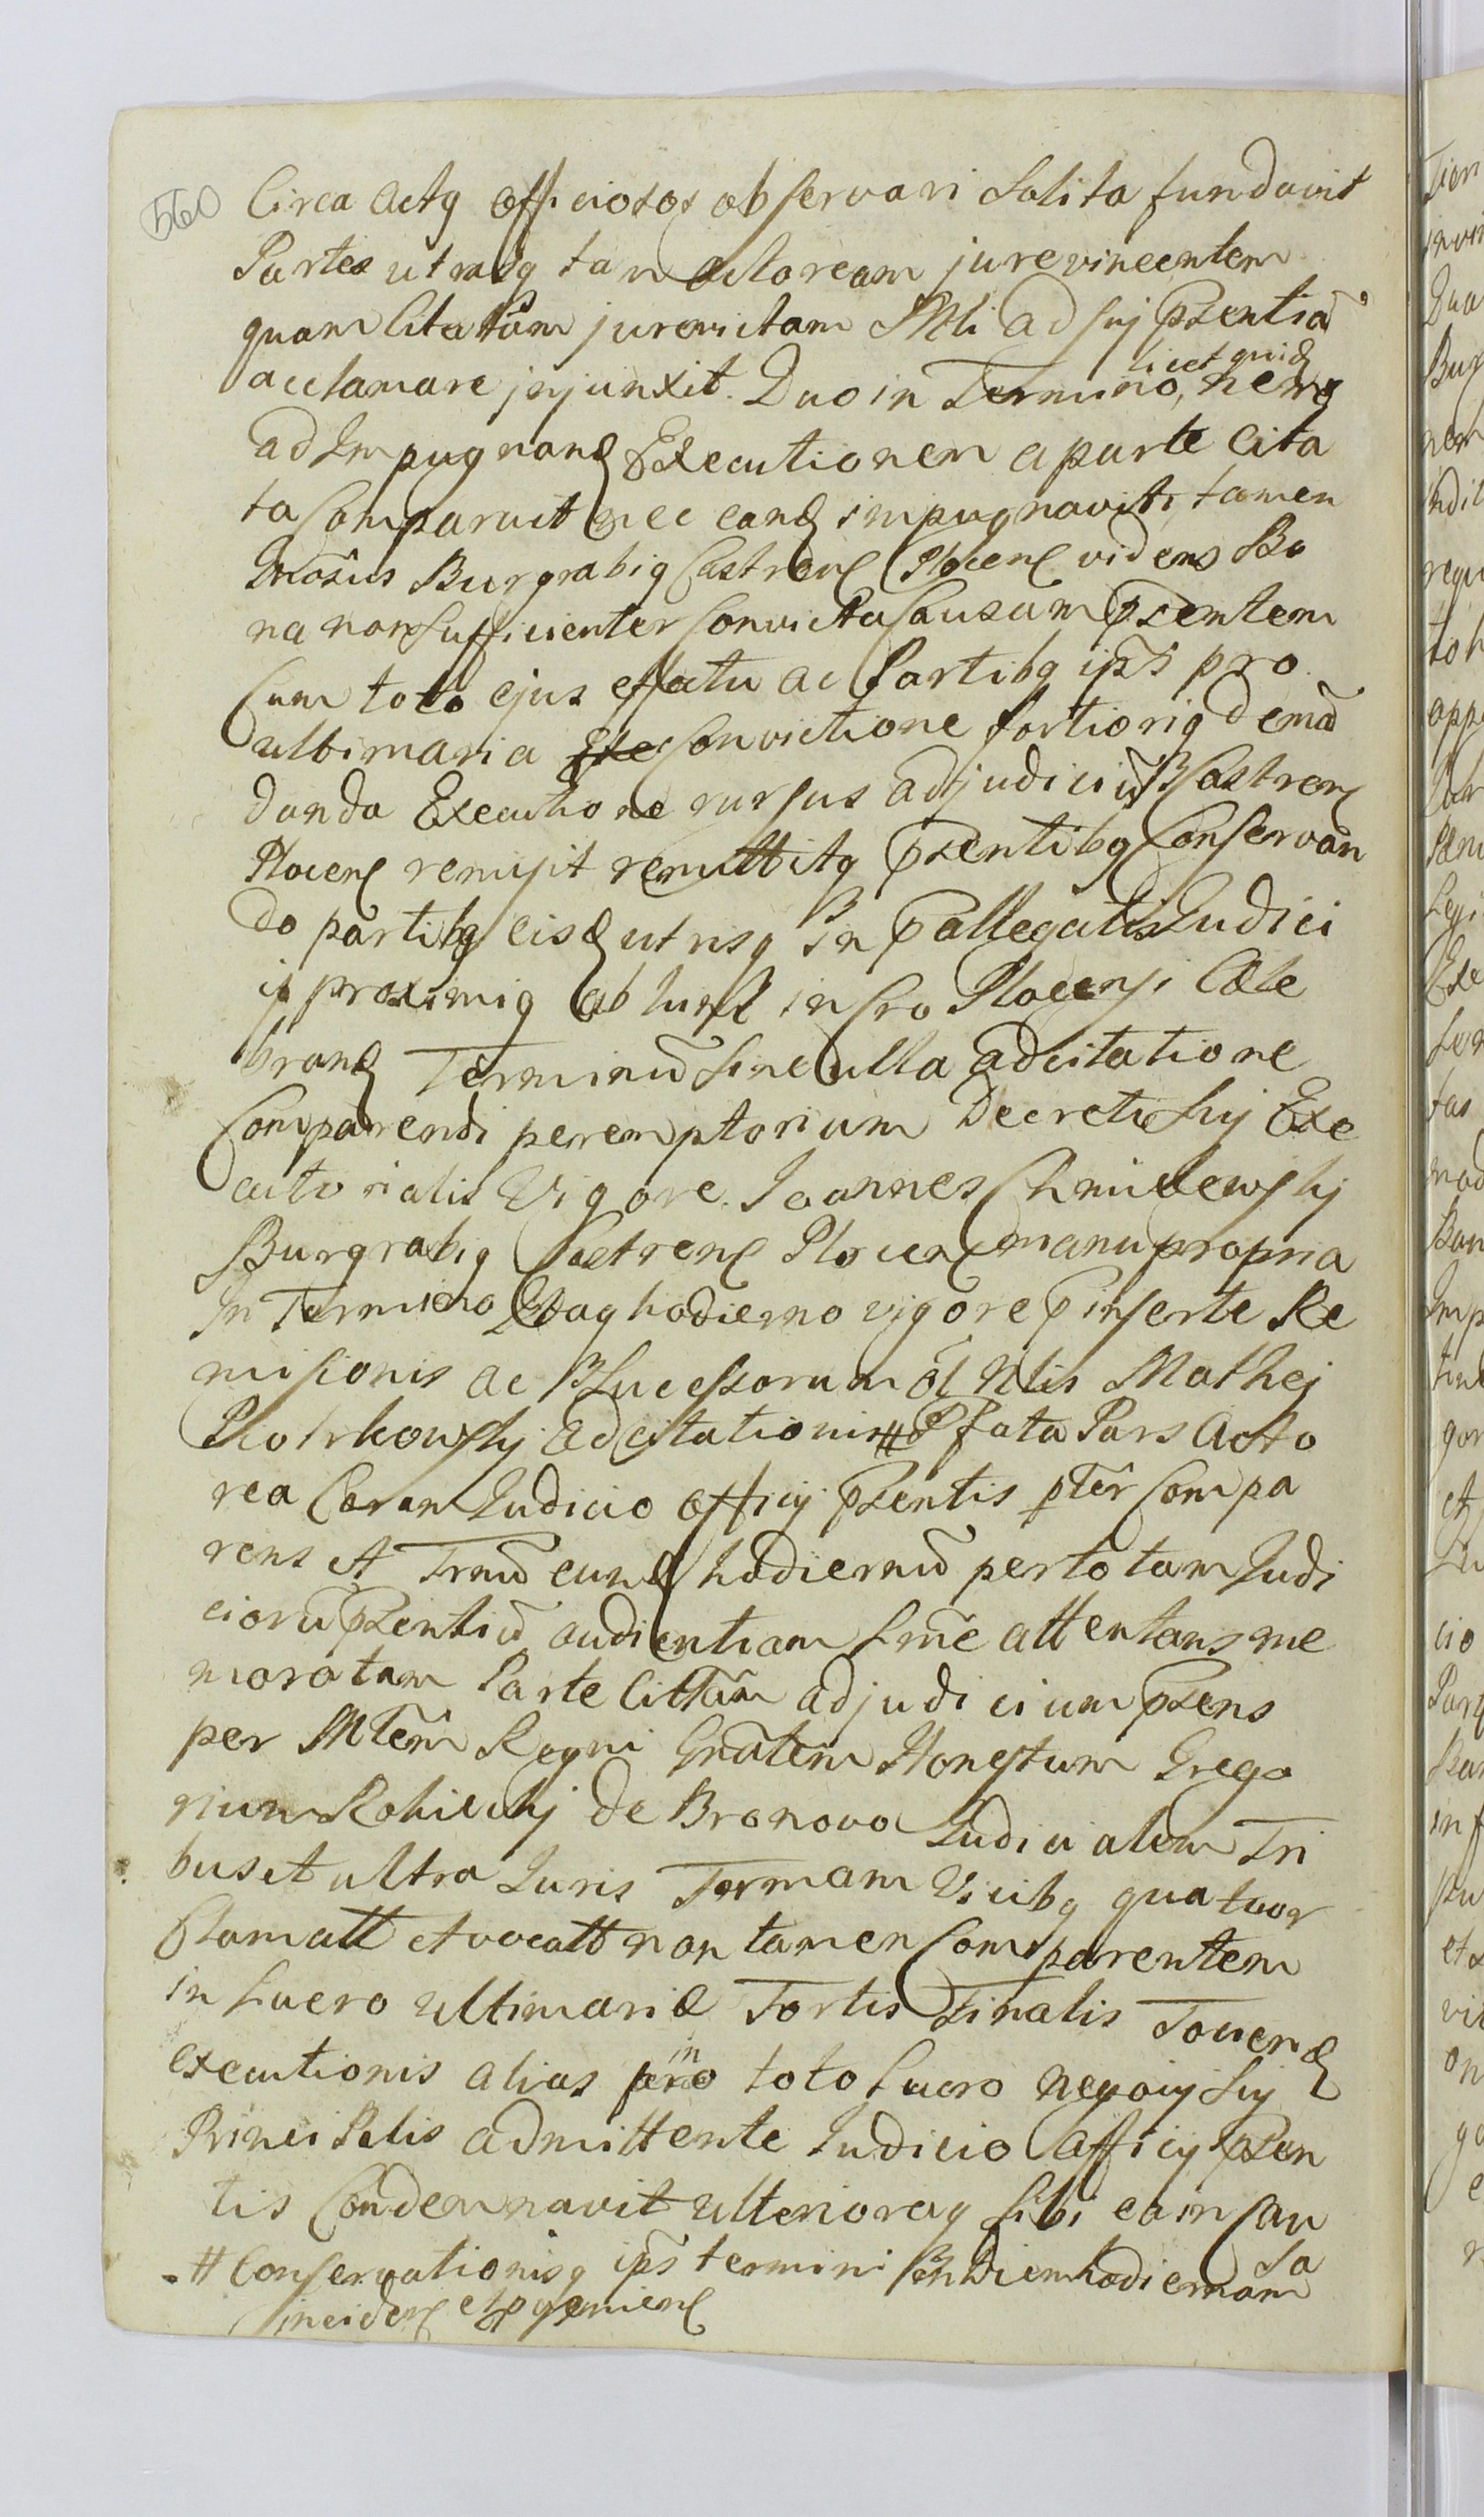 560
Circa Actq officiosos observari Solita fundavit
Partes utrasq tam Actoream jurevincentem
quam Citatam jurevictam Mli ad sui pszentiã
acclamare injunxit. Quo in Termino, licet quid nemo
ad Impugnand Executionem a parte Cita
ta Comparuit nec eand impugnavit, tamen
Grosus Burgrabiq Castren Plocen videns Bo
na non Sufficienter Convicta Causam pszentem
Cum toto ejus effectu ac Partibq ips pro
ultimaria Exe Convictione fortioriq demã
danda Executione rursus ad judiciũ Castren
Plocen remisit remittitq pszentibq Conservan
do partibq eisd utrisq in p allegatis Judici
is proximiq ab hinc in Cro Plocensi Cele
brand Terminũ sine ulla adcitatione
Comparendi peremptorium Decreti sui Exe
cutorialis Vigore. Joannes Chmielewskj
Burgrabiq Castrens Plocen manu propria
In Termino itaq hodierno vigore p inserte Re
missionis ac Successorum ol Nlis Mathej
Piotrkowskj Adcitationis # Pfata Pars Acto
rea Coram Judicio officij pszentis pter Compa
rens et Trnũ eund hodiernũ per totam Judi
ciorũ pszentiũ audientiam Sme attentans me
moratam Parte Cittam ad judicium pszens
per Mtem Regni Gnatem Honestum Grego
rium Rokickj de Bronovo Judicialem Tri
bus et ultra Juris Formam Vicibq quatuor
Clamatt et vocatt non tamen Comparentem
in Lucro ultimariæ Fortis Finalis Fovend
executionis alias pro in toto Lucro negoij sui
Principalis admittente Judicio Officij pszen
tis Condemnavit ulterioraq sibi ea in Cau
sa
# Conservationisq ips termini in Diem hodiernam
inciden et pvenien